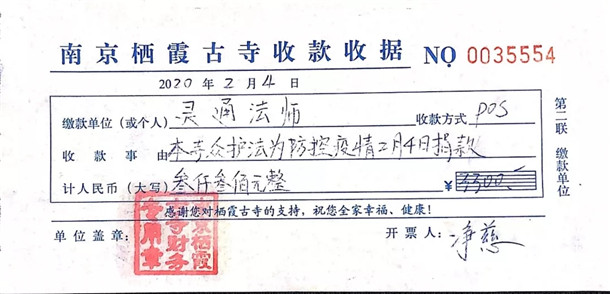 南京栖霞古寺收款收据 NO 0035554
2020 年 2 月 4 日
缴款单位（或个人） 灵通法师 收款方式 POS
收款事由 本寺众护法为防控疫情2月4日捐款
计人民币（大写） 叁仟叁佰元整 ¥ 3300.—
感谢您对栖霞古寺的支持，祝您全家幸福、健康！
单位盖章： 开票人： 净慈
第二联 缴款单位
南京栖霞
古寺财务
专用章